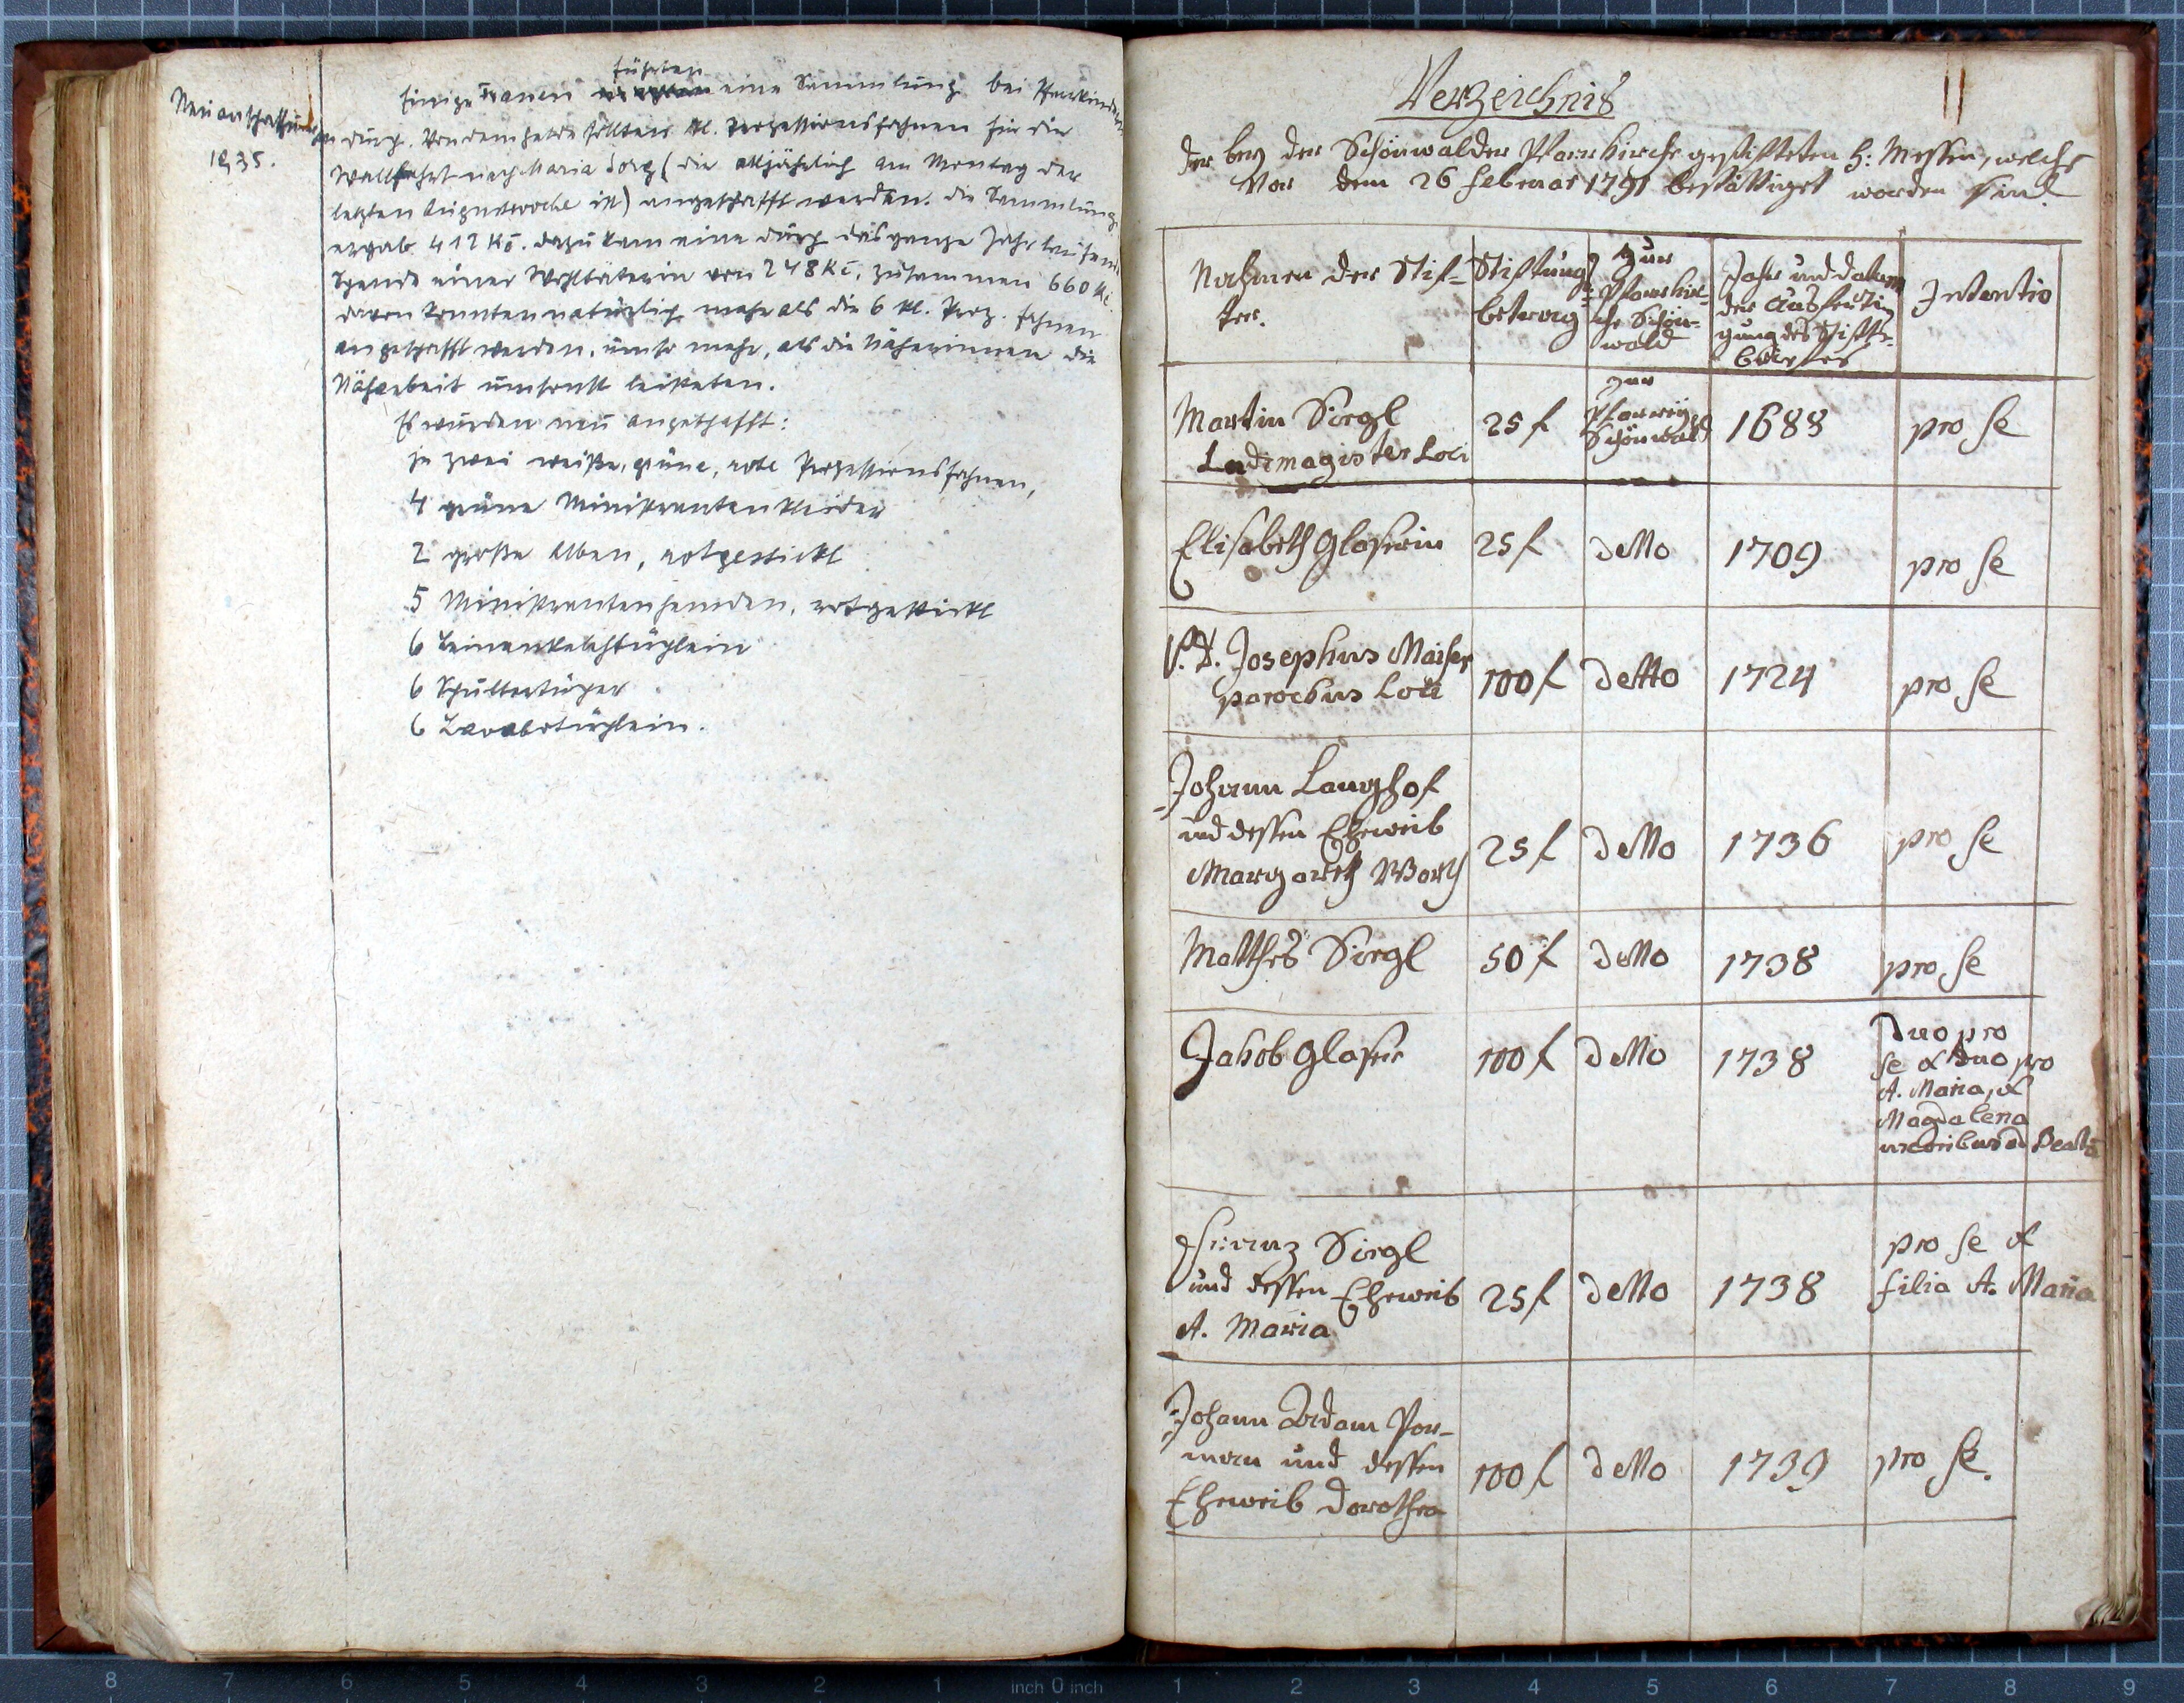 Neuanschaffungen
1935.
führten
Einige Frauen eine Sammlung bei Pfarrkindern
durch. Von dem Gelde sollten kl. Prozessionsfahnen für die
Wallfahrt nach Maria Sorg (die alljährlich am Montag der
letzten Augustwoche ist) angeschafft werden. Die Sammlung
ergab 412 Kč. Dazu kam eine durch das ganze Jahr laufende
Spende einer Wohltäterin von 248 Kč, zusammen 660 Kč.
Davon konnten natürlich mehr als die 6 kl. Proz. fahnen
angeschafft werden, umso mehr, als die Näherinnen die
Näharbeit umsonst leisteten.
Es wurden neu angeschafft:
je zwei weiße, grüne, rote Prozessionsfahnen,
4 grüne Ministrantenkleider
2 große Alben, rotgestickt
5 Ministrantenhemden, rotgestickt
6 Leinenkelchtüchlein
6 Schultertücher
6 Lavabotüchlein.
11
Verzeichnis
der bey der Schönwalder Pfarrkirche gestifteten h: Messen, welche
vor dem 26 Februar 1791 bestättiget worden sind.
Nahmen der Stif-
ter.
Stiftungs
betrag
Zur
Pfarrkir-
che Schön-
wald
Jahr und datum
der Ausferti-
gung des Stifts-
briefes
Intentio
Martin Siegl
Ludimagister Loci
25 f
zur
Schönwald
1688
pro se
Elisabeth Glaserin
25 f
detto
1709
pro se
P. D. Josephus Maiser
parochus Loci
100 f
detto
1724
pro se
Johann Langhof
und dessen Eheweib
Margareth Barth
25 f
detto
1736
pro se
Matthes Siegl
50 f
detto
1738
pro se
Jakob Glaser
100 f
detto
1738
Duo pro
se & Duo pro
A. Maria, &
Magdalena
uxoribus
Franz Siegl
und dessen Eheweib
A. Maria
25 f
detto
1738
pro se &
filia A. Maria
Johann Adam Por-
man und dessen
Eheweib Dorothea
100 f
detto
1739
pro se.